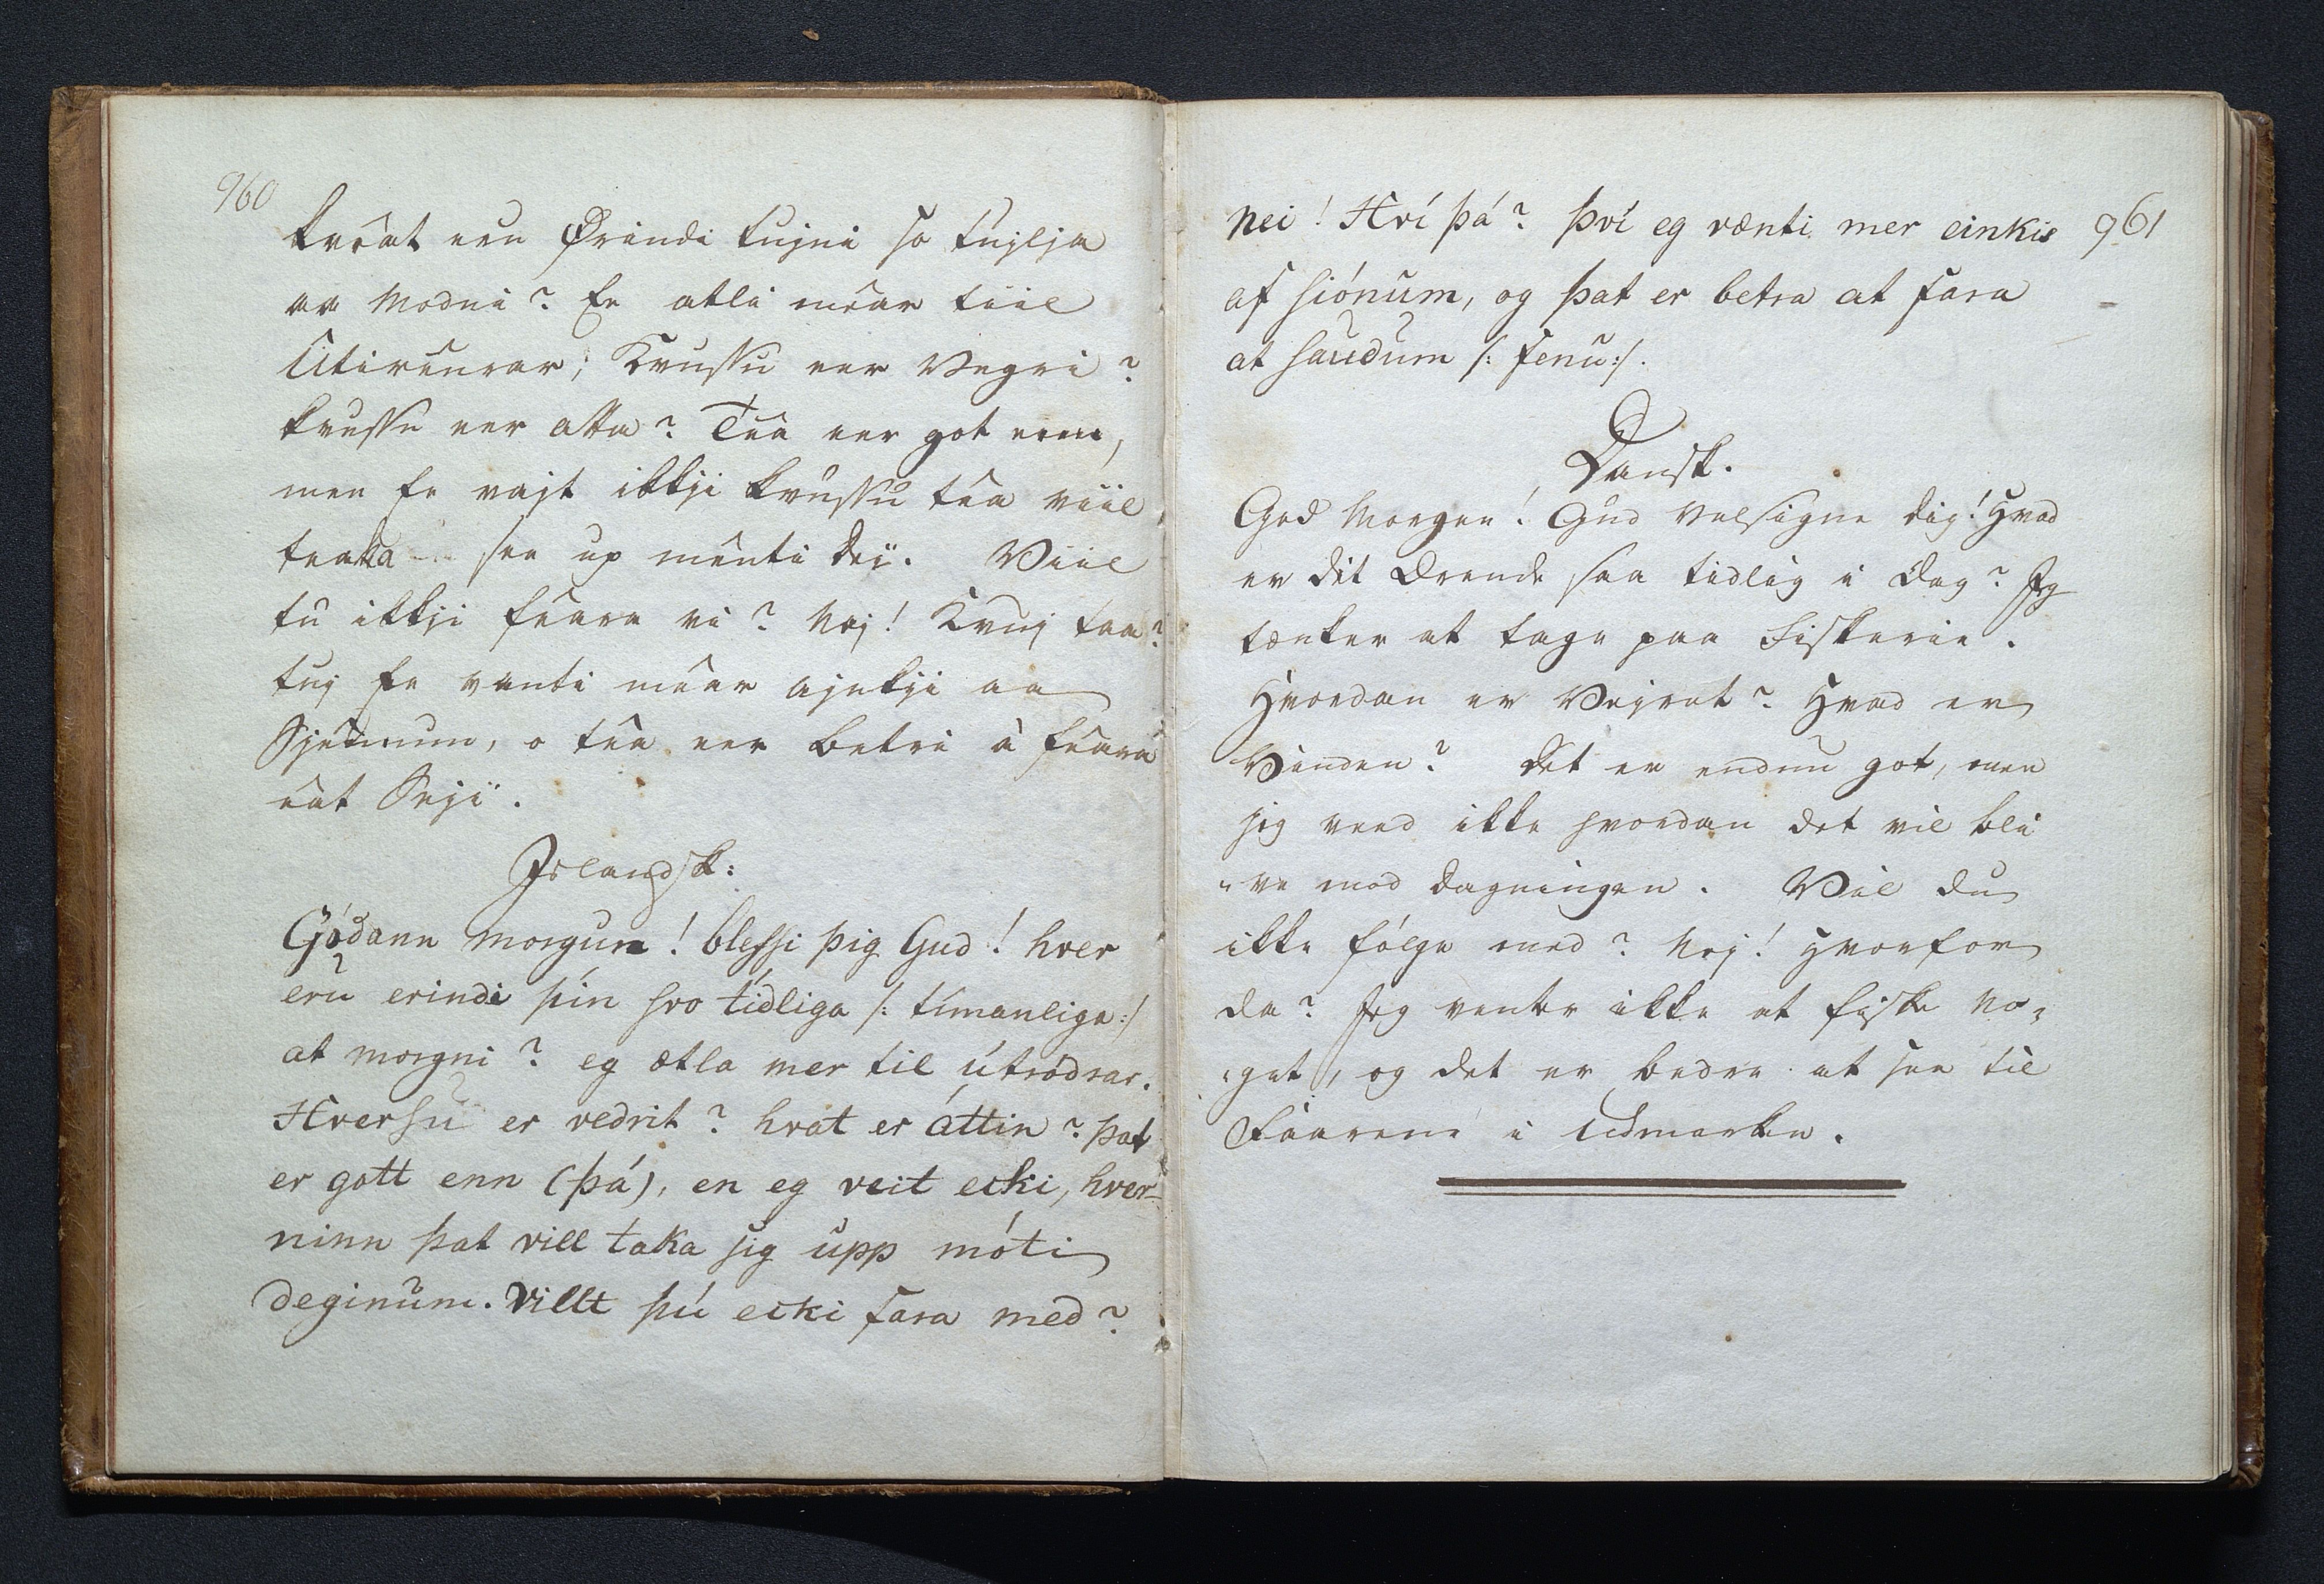 960
kvöat eru Örindi tujni so tujlja
aa Modni? Ee atli mêar tiil
Utirôurar; Kvussu eer Vegri?
kvussu eer atta? Têa eer got enn,
men Ee vajt ikkji kvussu têa viil
teaka see up mouti Dei. Viil
tu ikkji fêara vi? Nej! Kvuj taa?
tuj Ee vænti mêar ajnkji aa
Sjönnun, o têa eer betri â fêara
êat Seji.
Islandsk:
Gódann morgun! blessi þig Gud! hver
erú erindi þín svo tídliga /: tímanliga :/
at morgni? eg ætla mer til útródrar.
Hversu er vedrit? hvat er áttin? þat
er gott enn (þá), en eg veit ecki, hver-
ninn þat vill taka sig upp móti
deginum. Villt þú ecki fara med?
nei! Hví þá? því eg vænti mer einkis
961
af siónum, og þat er betra at fara
at saudum /: fenu :/.
Dansk.
God Morgen! Gud velsigne dig! Hvad
er dit Ærende saa tidlig i Dag? Jeg
tænker at tage paa Fiskerie.
Hvordan er Vejret? Hvad er
Vinden? Det er endnu got, men
jeg veed ikke hvordan det vil bli
-ve mod Dagningen. Vil du
ikke fólge med? Nej! hvorfor
da? Jeg venter ikke at fiske No-
-get, og det er bedre at see til
Faarene i Udmarken.